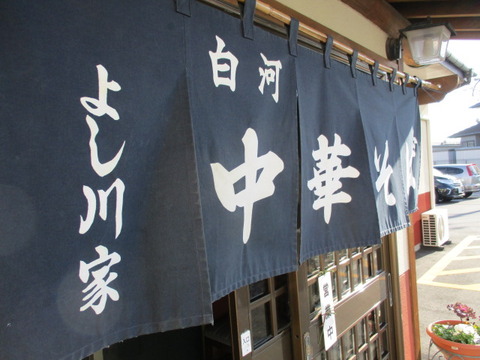 よし川家
白河
中華そば
営業中